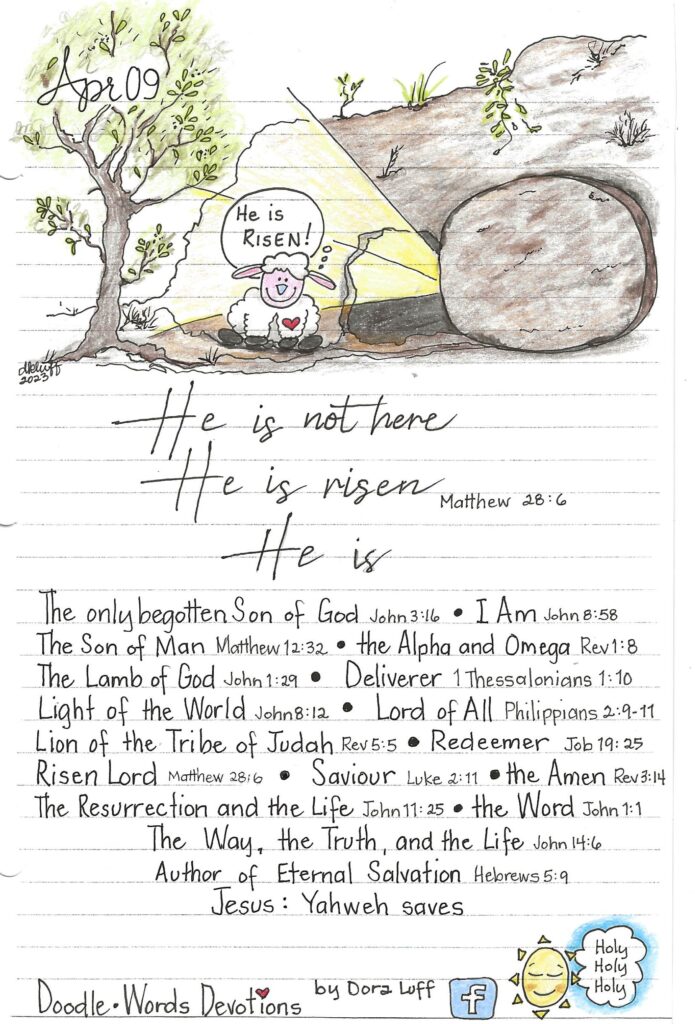 Apr 09
He is
RISEN!
dkluff
2023
He is not here
He is risen Matthew 28:6
He is
The only begotten Son of God John 3:16 • I Am John 8:58
The Son of Man Matthew 12:32 • the Alpha and Omega Rev 1:8
The Lamb of God John 1:29 • Deliverer 1 Thessalonians 1:10
Light of the World John 8:12 • Lord of All Philippians 2:9-11
Lion of the Tribe of Judah Rev 5:5 • Redeemer Job 19:25
Risen Lord Matthew 28:6 • Saviour Luke 2:11 • the Amen Rev 3:14
The Resurrection and the Life John 11:25 • the Word John 1:1
The Way, the Truth, and the Life John 14:6
Author of Eternal Salvation Hebrews 5:9
Jesus: Yahweh saves
Holy
Holy
Holy
Doodle•Words Devotions by Dora Luff f